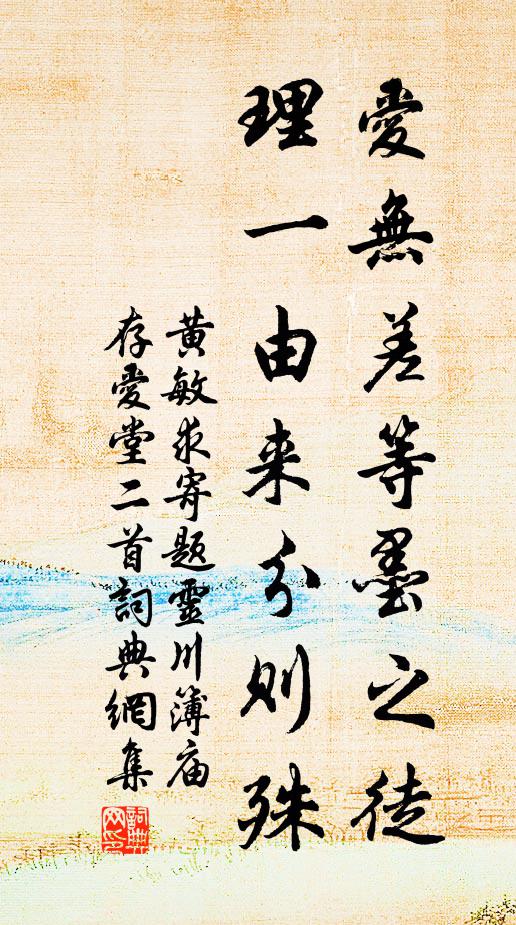 愛無差等墨之徒
理一由来分則殊
黄敏求寄題靈川簿庙
存愛堂二首詞典網集
詞典
网印